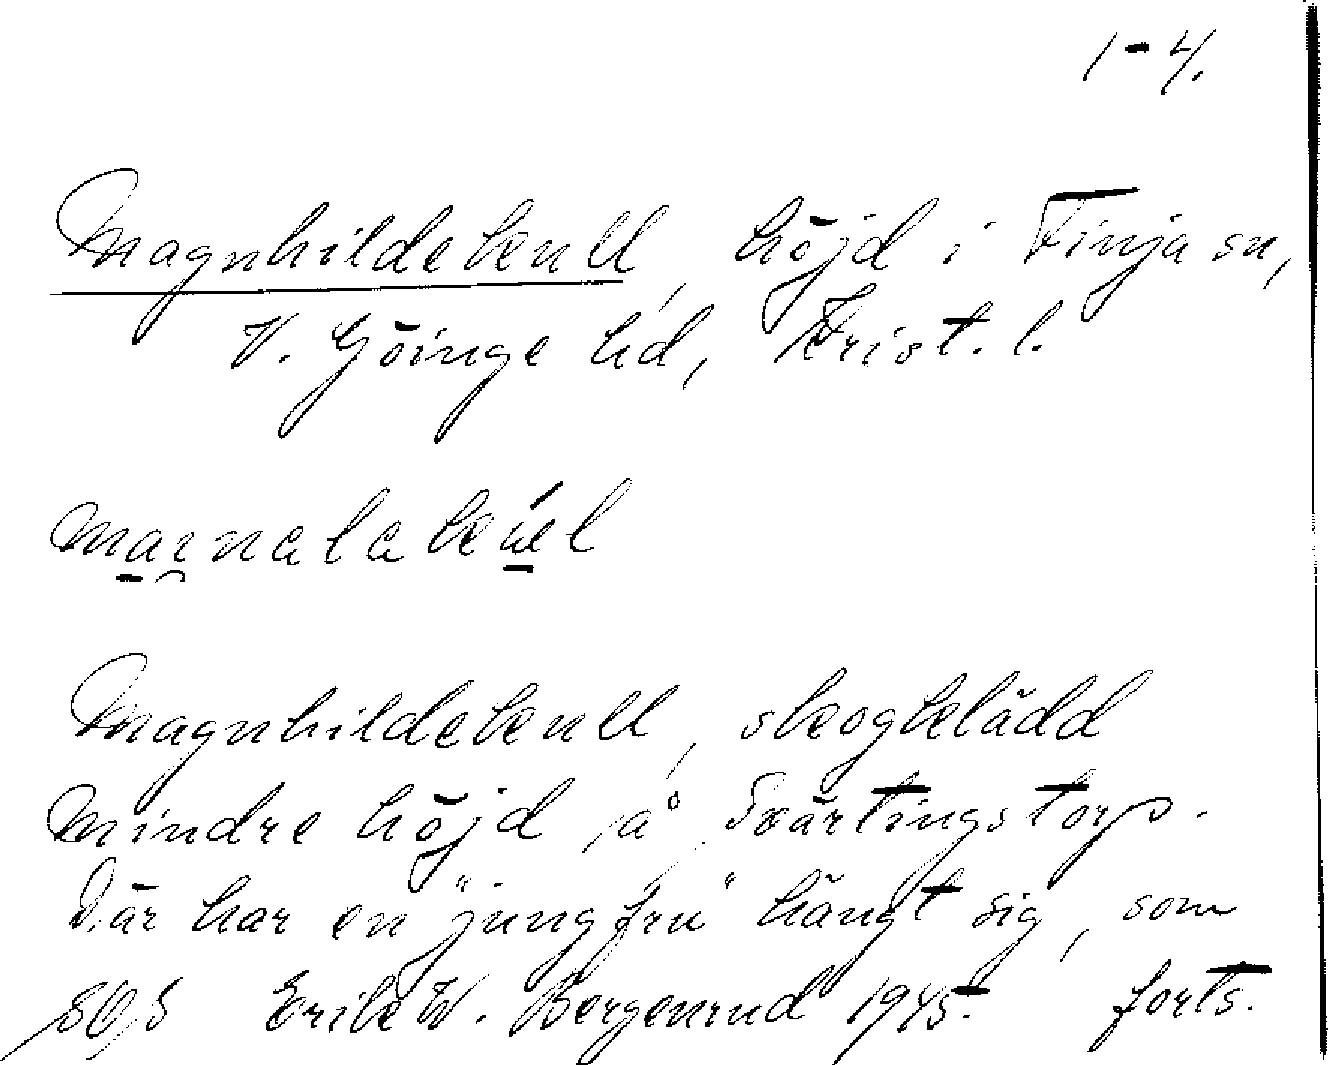 1-4.
Magnhildekull, höjd i Finja sn,
V. Göinge hd, Krist. l.
Magnhildekull, skogklädd
mindre höjd på Svärtingstorp.
Där har en "jungfru" hängt sig, som
Erik W. Bergenrud 1945. forts.